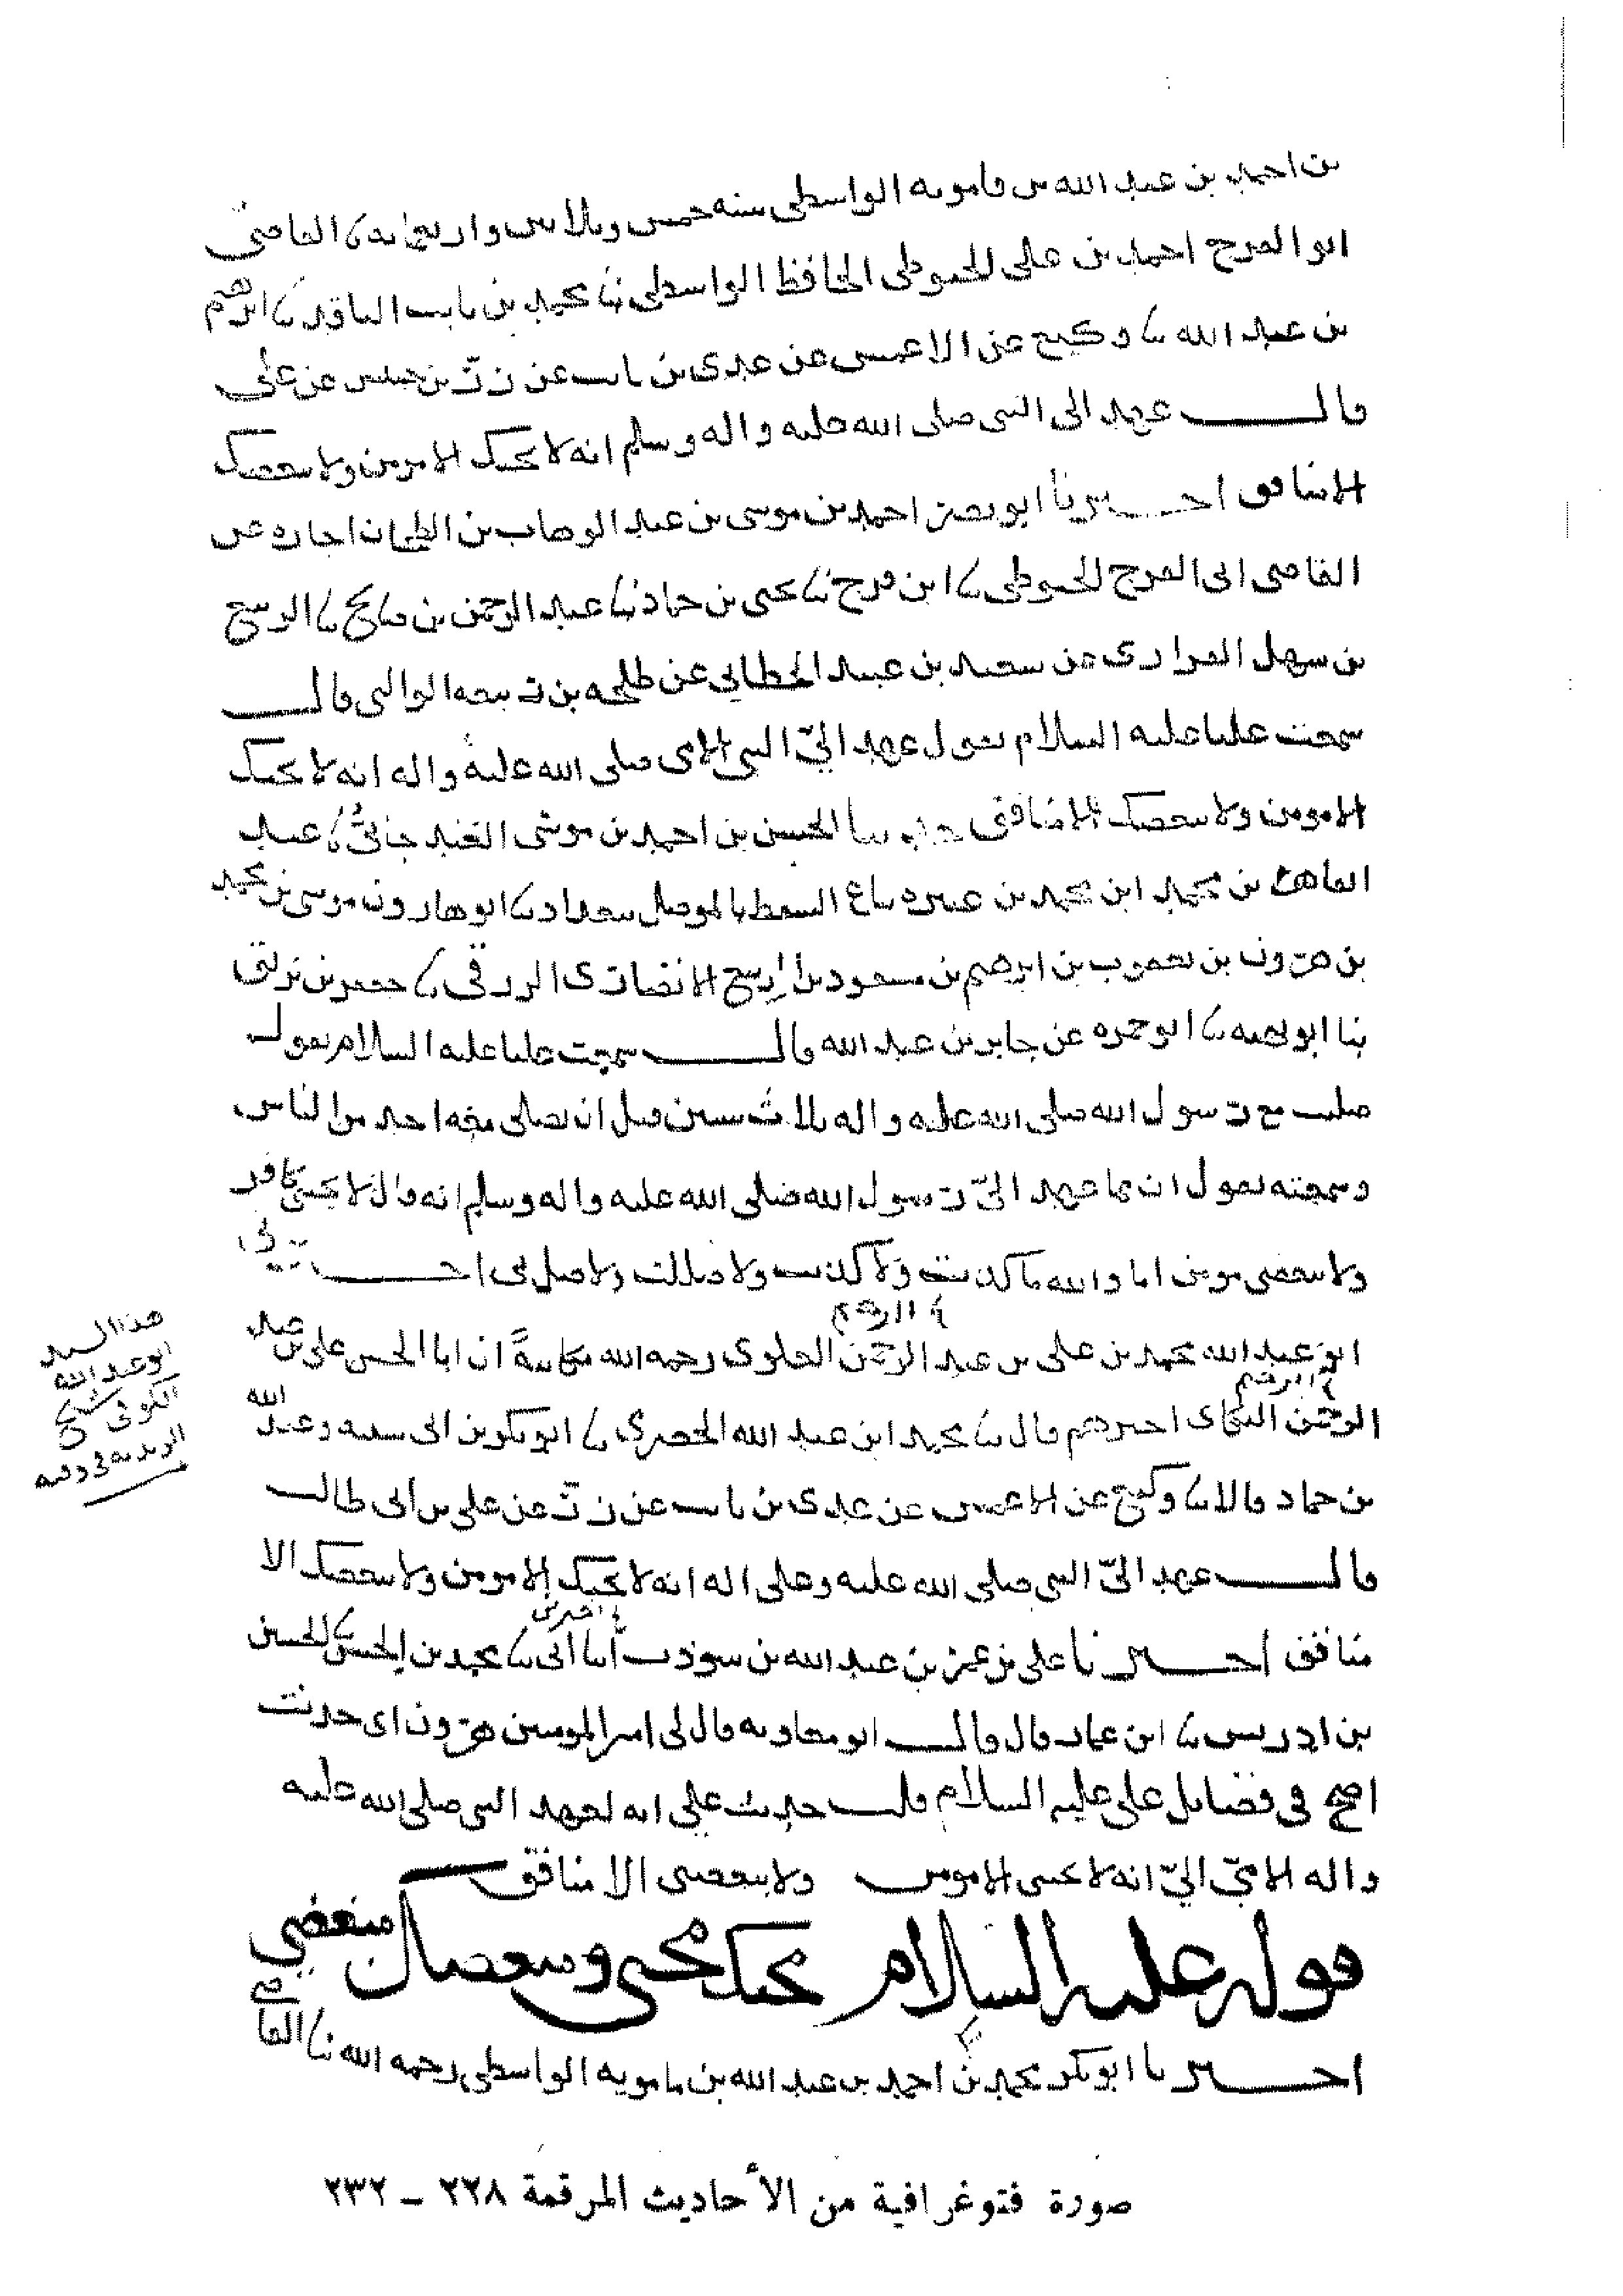 بن احمد بن عبد الله بن مامويه الواسطى سنه خمس وثلاثين واربعمائه نا القاضى
ابو الفرج احمد بن على الخيوطى الحافظ الواسطى نا محمد بن ثابت الناقد نا ابرهيم
بن عبد الله نا وكيع عن الاعمش عن عدى بن ثابت عن زر بن حبيش عن على
قال عهد الى النبى صلى الله عليه واله وسلم انه لا يحبك الا مومن ولا يبغضك
الا منافق اخبرنا ابو نصر احمد بن موسى بن عبد الوهاب بن الطحان اجازه عن
القاضى ابى الفرج الخيوطى نا ابن فرح نا يحيى بن حماد نا عبد الرحمن بن صالح نا الربيع
بن سهل الفزارى عن سعيد بن عبيد الطائي عن على بن ربيعه الوالبى قال
سمعت عليا عليه السلام يقول عهد اليّ النبى الامى صلى الله عليه واله انه لا يحبك
الا مومن ولا يبغضك الا منافق حدثنا الحسن بن احمد بن موسى الغندجانىّ نا عبيد
بن محمد ابن محمد بن بياع السقط بالموصل ببغداد نا ابو هارون موسى بن محمد
بن هرون بن يعقوب بن ابرهيم بن مسعود بن الربيع الانصارى الزرقى نا جعفر بن
نا ابو نا ابو حمزه عن جابر بن عبد الله قال سمعت عليا عليه السلام يقول
صليت مع رسول الله صلى الله عليه واله ثلاث سنين قبل ان يصلى معه احد من الناس
وسمعته يقول ان مما عهد اليّ رسول الله صلى الله عليه واله وسلم انه قال لا يحبنى كافر
ولا يبغضنى مومن اما والله ما كذبت ولا كذبت ولا ضللت ولا ضل بى اخبرنى
ابو عبد الله محمد بن على بن عبد الرحمن العلوى رحمه الله مكاتبةً ان ابا الحسن على بن عبد
الرحمن البكائى اخبرهم قال نا محمد ابن عبد الله الحضرمى نا ابو بكر بن ابى شيبه وعبد الله
بن حماد قالا نا وكيع عن الاعمش عن عدى بن ثابت عن زر عن على بن ابى طالب
قال عهد اليّ النبى صلى الله عليه وعلى اله انه لا يحبك الا مومن ولا يبغضك الا
منافق اخبرنا على بن عمر بن عبد الله بن شوذب نا ابى نا محمد بن الحسن نا الحسين
بن ادريس نا ابن عمار قال قال ابو معاويه قال لى امير المومنين هرون اى حديث
اصح فى فضائل على عليه السلام قلت حديث على انه لعهد النبى صلى الله عليه
واله الامىّ اليّ انه لا يحبنى الا مومن ولا يبغضنى الا منافق
قوله عليه السلام محبك محبى ومبغضك مبغضى
اخبرنا ابو بكر محمد بن احمد بن عبد الله بن مامويه الواسطى رحمه الله نا القاضى
هذا السيد
ابو عبد الله
الكوفى شيخ
الزيديه فى وقته
صورة فتوغرافية من الأحاديث المرقمة ٢٢٨ – ٢٣٢